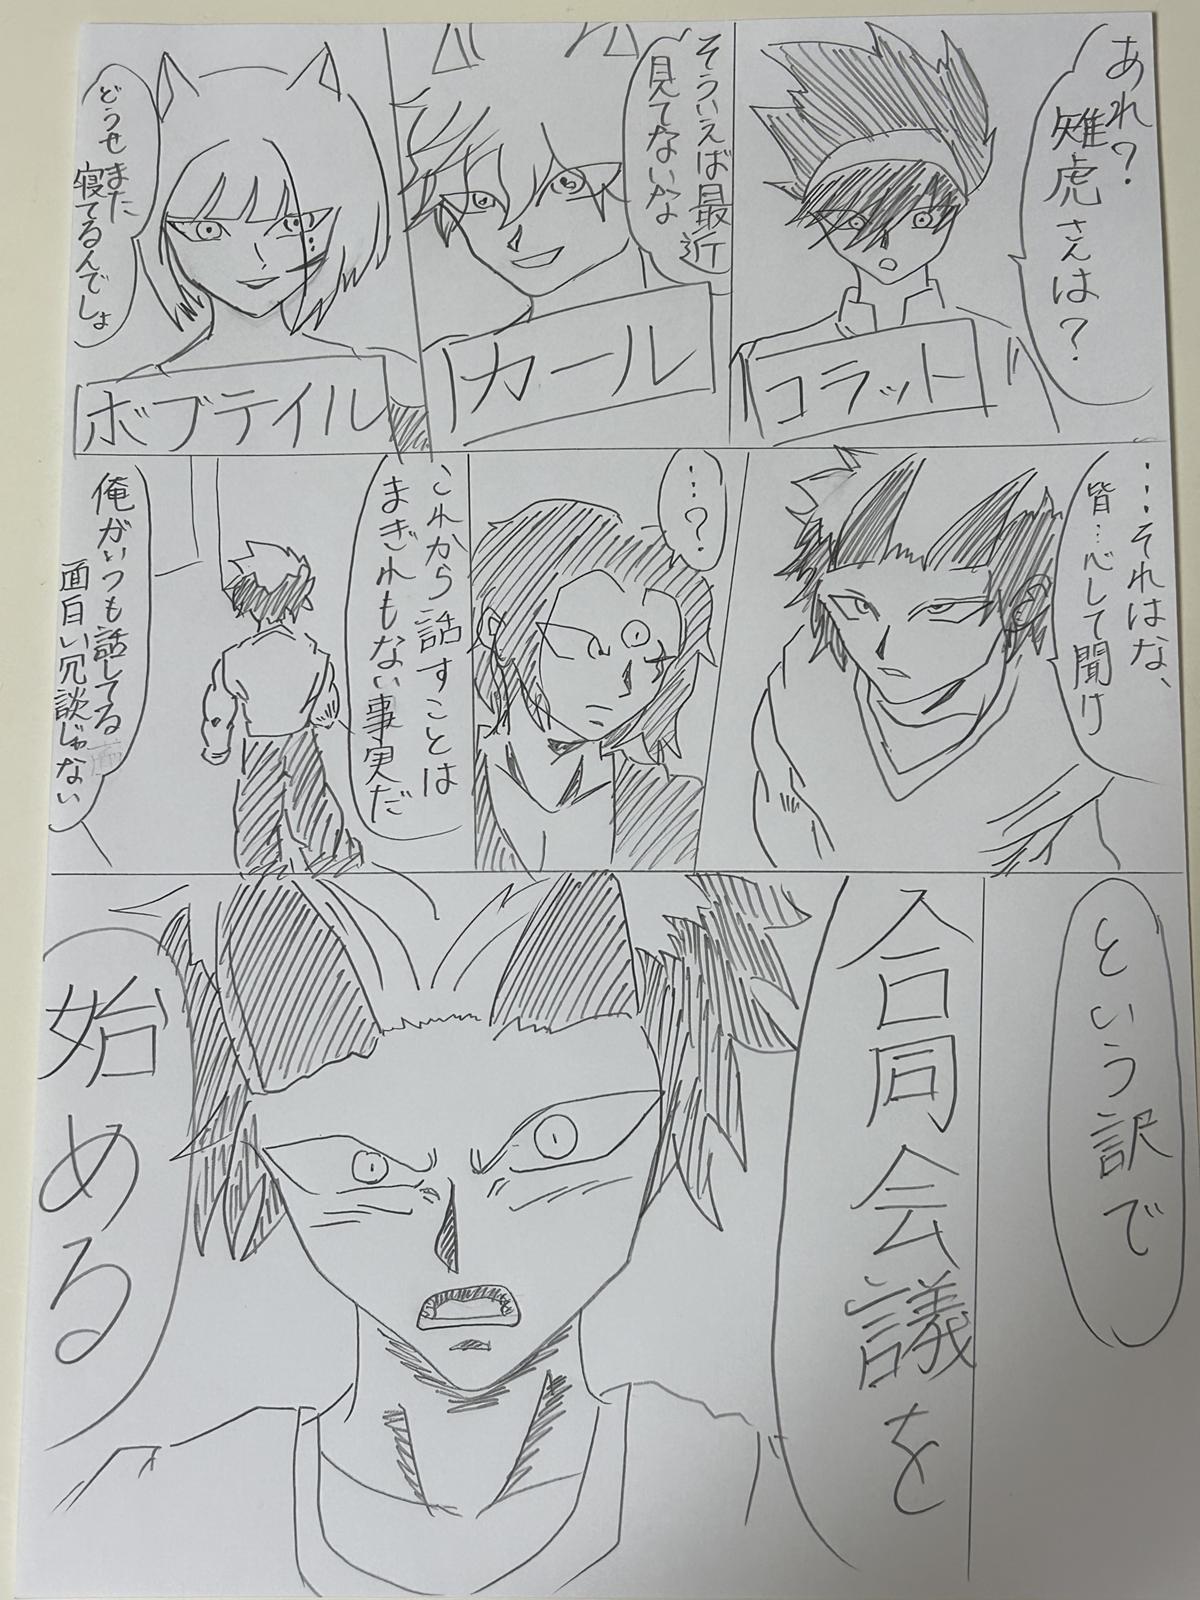 あれ?
雉虎さんは?
コラット
そういえば最近
見てないな
カール
どうせまた
寝てるんでしょ
ボブテイル
…それはな、
皆…心して聞け
…?
これから話すことは
まぎれもない事実だ
俺がいつも話してる
面白い冗談じゃない
という訳で
合同会議を
始める